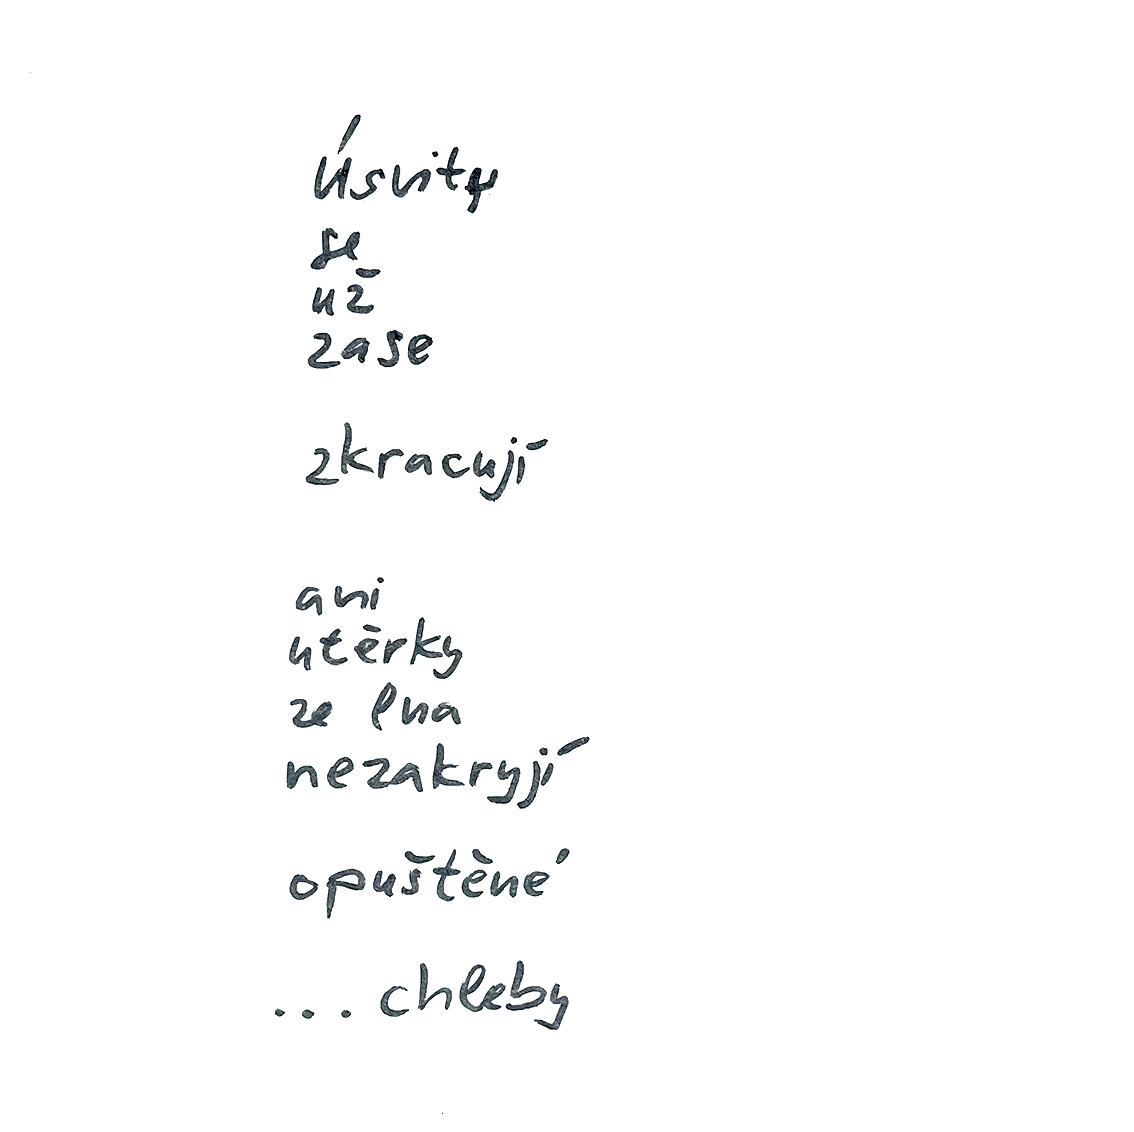 Úsvity
se
už
zase
zkracují
ani
utěrky
ze lna
nezakryjí
opuštěné
... chleby